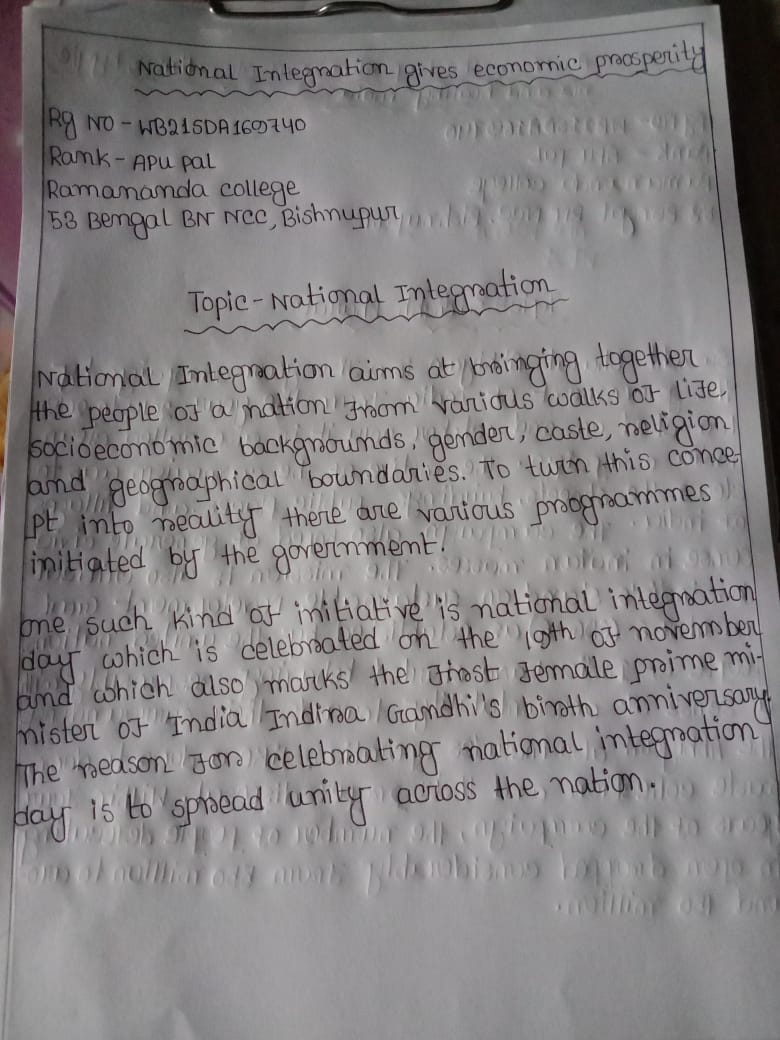 National Integration gives economic prosperity
Rg NO - WB21SDA160740
Rank - APU pal
Ramananda college
53 Bengal BN NCC, Bishnupur
Topic - National Integration
National Integration aims at bringing together
the people of a nation from various walks of life,
socioeconomic backgrounds, gender, caste, religion
and geographical boundaries. To turn this conce
pt into reality there are various programmes
initiated by the government.
one such kind of initiative is national integration
day which is celebrated on the 19th of november
and which also marks the first female prime mi-
nister of India Indira Gandhi's birth anniversary.
The reason for celebrating national integration
day is to spread unity across the nation.